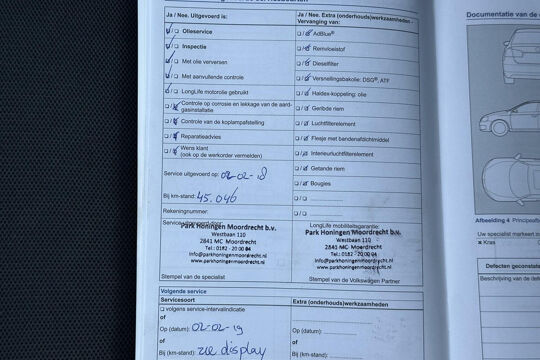 Ja / Nee. Uitgevoerd is:
Olieservice
Inspectie
Met olie verversen
Met aanvullende controle
LongLife motorolie gebruikt
Controle op corrosie en lekkage van de aard-
gasinstallatie
Controle van de koplampafstelling
Reparatieadvies
Wens klant
(ook op de werkorder vermelden)
Service uitgevoerd op: 02-02-18
Bij km-stand: 45.046
Rekeningnummer:
Service uitgevoerd door:
Park Honingen Moordrecht b.v.
Westbaan 110
2841 MC Moordrecht
Tel.: 0182 - 20 00 04
info@parkhoningenmoordrecht.nl
www.parkhoningenmoordrecht.nl
Stempel van de specialist
Ja / Nee. Extra (onderhouds)werkzaamheden -
Vervanging van:
AdBlue®
Remvloeistof
Dieselfilter
Versnellingsbakolie: DSG®, ATF
Haldex-koppeling: olie
Geribde riem
Luchtfilterelement
Flesje met bandenafdichtmiddel
Interieurluchtfilterelement
Getande riem
Bougies
LongLife mobiliteitsgarantie:
Park Honingen Moordrecht b.v.
Westbaan 110
2841 MC Moordrecht
Tel.: 0182 - 20 00 04
info@parkhoningenmoordrecht.nl
www.parkhoningenmoordrecht.nl
Stempel van de Volkswagen Partner
Volgende service
Servicesoort
volgens service-intervalindicatie
of
Op (datum): 02-02-19
of
Bij (km-stand): zie display
Extra (onderhouds)werkzaamheden
Op (datum):
of
Bij (km-stand):
Documentatie van de
Afbeelding 4 Principeafb
Uw specialist markeert in
Kras
Defecten geconstate
Beschrijving van de defe